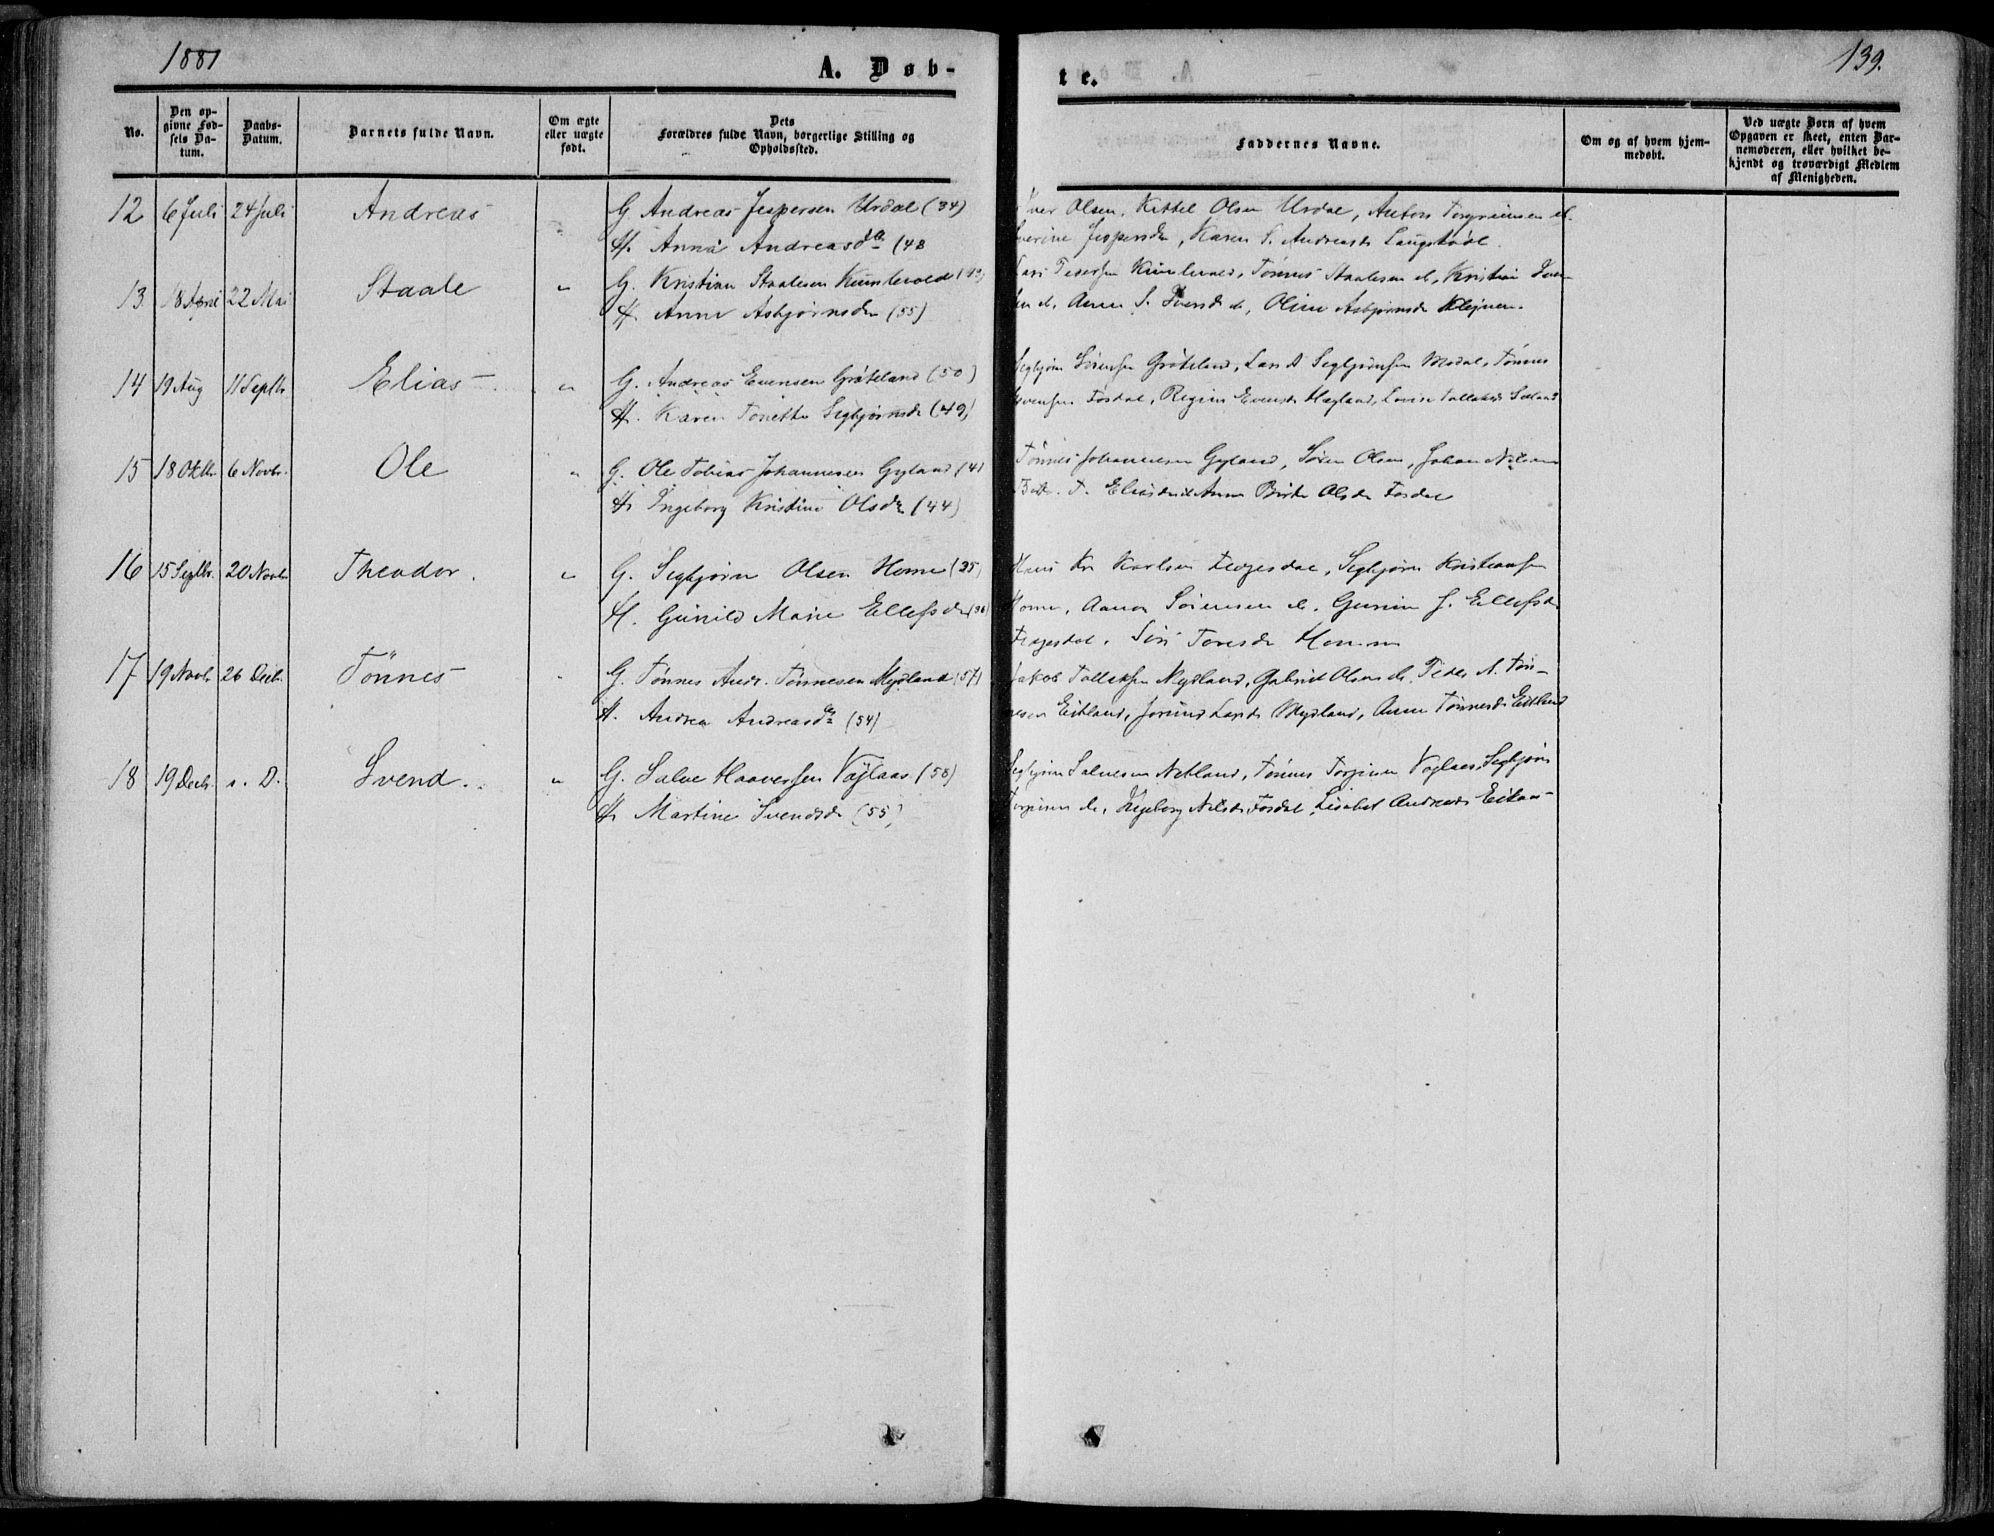 1881
A. Døb-
te.
139.
No.
Den op-
givne Fød-
sels Da-
tum.
Daabs-
Datum.
Barnets fulde Navn.
Om ægte
eller uægte
født.
Dets
Forældres fulde Navn, borgerlige Stilling og
Opholdssted.
Faddernes Navne.
Om og af hvem hjem-
medøbt.
Ved uægte Børn af hvem
Opgaven er skeet, enten Bar-
nemoderen, eller hvilket be-
kjendt og troværdigt Medlem
af Menigheden.
12 6 Juli 24 Juli Andreas G. Andreas Jespersen Urdal (34)
H. Anna Andreasdtr (48
Olsen, Kittel Olsen Urdal, Anton Torgrimsen d.
Jespersdr, Karen S. Andreasdr
13 18 April 22 Mai Staale " G. Kristian Staalesen Kumlevold
H. Anne Asbjørnsdr (55)
Pedersen Kumlevold, Tønnes Staalesen d., Kristian
d. Anne S. d., Oline Asbjørnsdr
14 19 Aug 11 Septbr Elias " G. Andreas Evensen Grøteland (50)
H. Karen Tonette Segbjørnsdr (49)
Segbjørn Sørensen Grøteland, Lars A Segbjørnsen Tønnes
Evensen Fosdal, Regine Evensdr Hægland, Lovise Tollaksdr
15 18 Oktbr 6 Novbr. Ole " G. Ole Tobias Johannesen Gyland (41
H. Ingeborg Kristine Olsdr (44)
Tønnes Johannesen Gyland, Søren Olsen, Johan Nilsen
Anne Birte Olsdr Fosdal
16 15 Septbr. 20 Novbr Theodor. " G. Segbjørn Olsen Home (35)
H. Gunild Marie Ellefsdr (36)
Hans Kr Karlsen Segbjørn Kristiansen
Home, Aanon Sørensen d. J. Ellefsdr
Siri Toresdr
17 19 Novbr 26 Decbr. Tønnes G. Tønnes Andr. Tønnesen Mydland (57)
H. Andrea Andreasdtr (54)
Jakob Tollaksen Mydland, Gabriel Olsen d. Peder A. Tøn-
nesen Eikland, Jorund Larsdr Mydland, Anne Tønnesdr Eikland
18 19 Decbr. s. D. Svend. " G. Salve Haaversen Vaglaas (58)
H. Martine Svendsdr (55)
Segbjørn Salvesen Netland, Tønnes Vaglaas, Segbjørn
d., Ingeborg Nilsdr Fosdal, Lisabet Andreasdr Eikaas